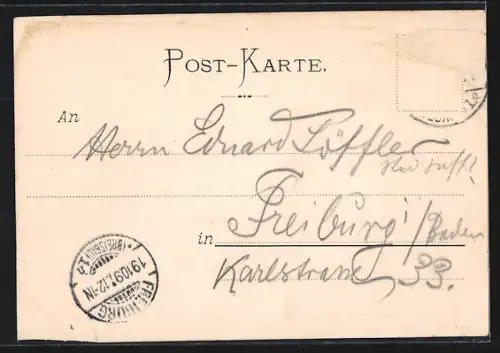 POST-KARTE.
An
Herrn Eduard Löffler
in Freiburg i/Baden
Karlstrasse 33.
FREIBURG
19.10.97.12-1N
(BREISGAU)